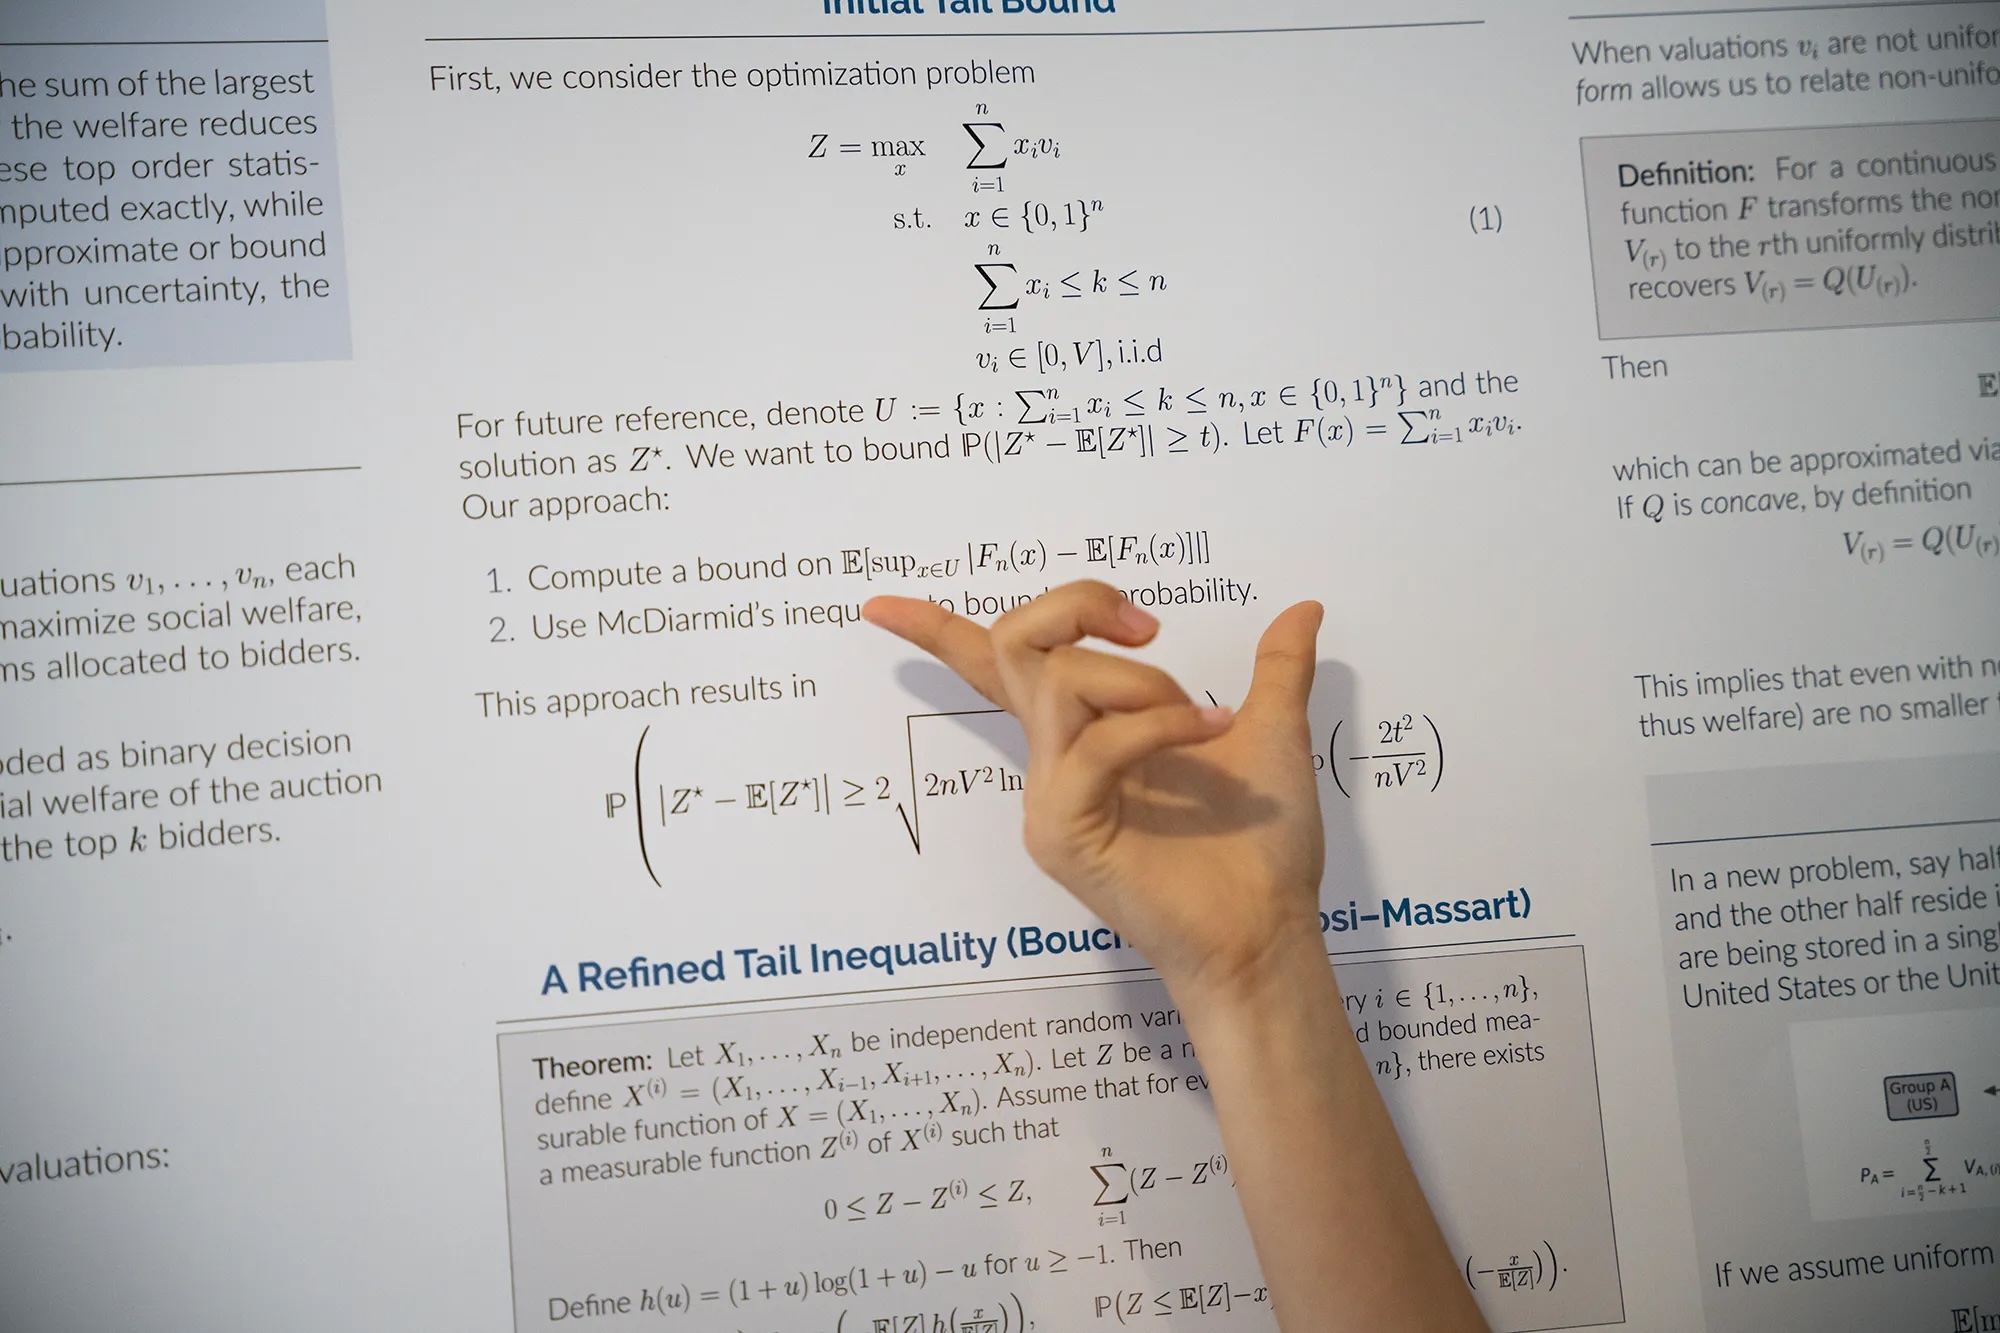 he sum of the largest
the welfare reduces
ese top order statis-
mputed exactly, while
pproximate or bound
with uncertainty, the
bability.
uations v₁, . . . , vₙ, each
maximize social welfare,
ms allocated to bidders.
ded as binary decision
ial welfare of the auction
the top k bidders.
valuations:
Initial Tail Bound
First, we consider the optimization problem
Z = max_x ∑_{i=1}^{n} xᵢvᵢ
s.t. x ∈ {0, 1}ⁿ
(1)
∑_{i=1}^{n} xᵢ ≤ k ≤ n
vᵢ ∈ [0, V], i.i.d
For future reference, denote U := {x : ∑_{i=1}^{n} xᵢ ≤ k ≤ n, x ∈ {0, 1}ⁿ} and the
solution as Z*. We want to bound ℙ(|Z* − 𝔼[Z*]| ≥ t). Let F(x) = ∑_{i=1}^{n} xᵢvᵢ.
Our approach:
1. Compute a bound on 𝔼[sup_{x∈U} |Fₙ(x) − 𝔼[Fₙ(x)]|]
2. Use McDiarmid's inequ to boun robability.
This approach results in
ℙ( |Z* − 𝔼[Z*]| ≥ 2√2nV² ln ) p(−2t²/nV²)
A Refined Tail Inequality (Bouc osi–Massart)
Theorem: Let X₁, . . . , Xₙ be independent random vari ry i ∈ {1, . . . , n},
define X⁽ⁱ⁾ = (X₁, . . . , Xᵢ₋₁, Xᵢ₊₁, . . . , Xₙ). Let Z be a n d bounded mea-
surable function of X = (X₁, . . . , Xₙ). Assume that for ev n}, there exists
a measurable function Z⁽ⁱ⁾ of X⁽ⁱ⁾ such that
0 ≤ Z − Z⁽ⁱ⁾ ≤ Z, ∑_{i=1}^{n} (Z − Z⁽ⁱ⁾
Define h(u) = (1 + u) log(1 + u) − u for u ≥ −1. Then
( 𝔼[Z] h(x/𝔼[Z])), ℙ(Z ≤ 𝔼[Z] − x (−x/𝔼[Z])).
When valuations vᵢ are not unifor
form allows us to relate non-unifo
Definition: For a continuous
function F transforms the nor
V₍ᵣ₎ to the rth uniformly distrib
recovers V₍ᵣ₎ = Q(U₍ᵣ₎).
Then
𝔼
which can be approximated via
If Q is concave, by definition
V₍ᵣ₎ = Q(U₍ᵣ₎
This implies that even with n
thus welfare) are no smaller
In a new problem, say half
and the other half reside i
are being stored in a singl
United States or the Unit
Group A
(US)
P_A = ∑_{i=n/2−k+1}^{n/2} V_{A,(i)
If we assume uniform
𝔼[m